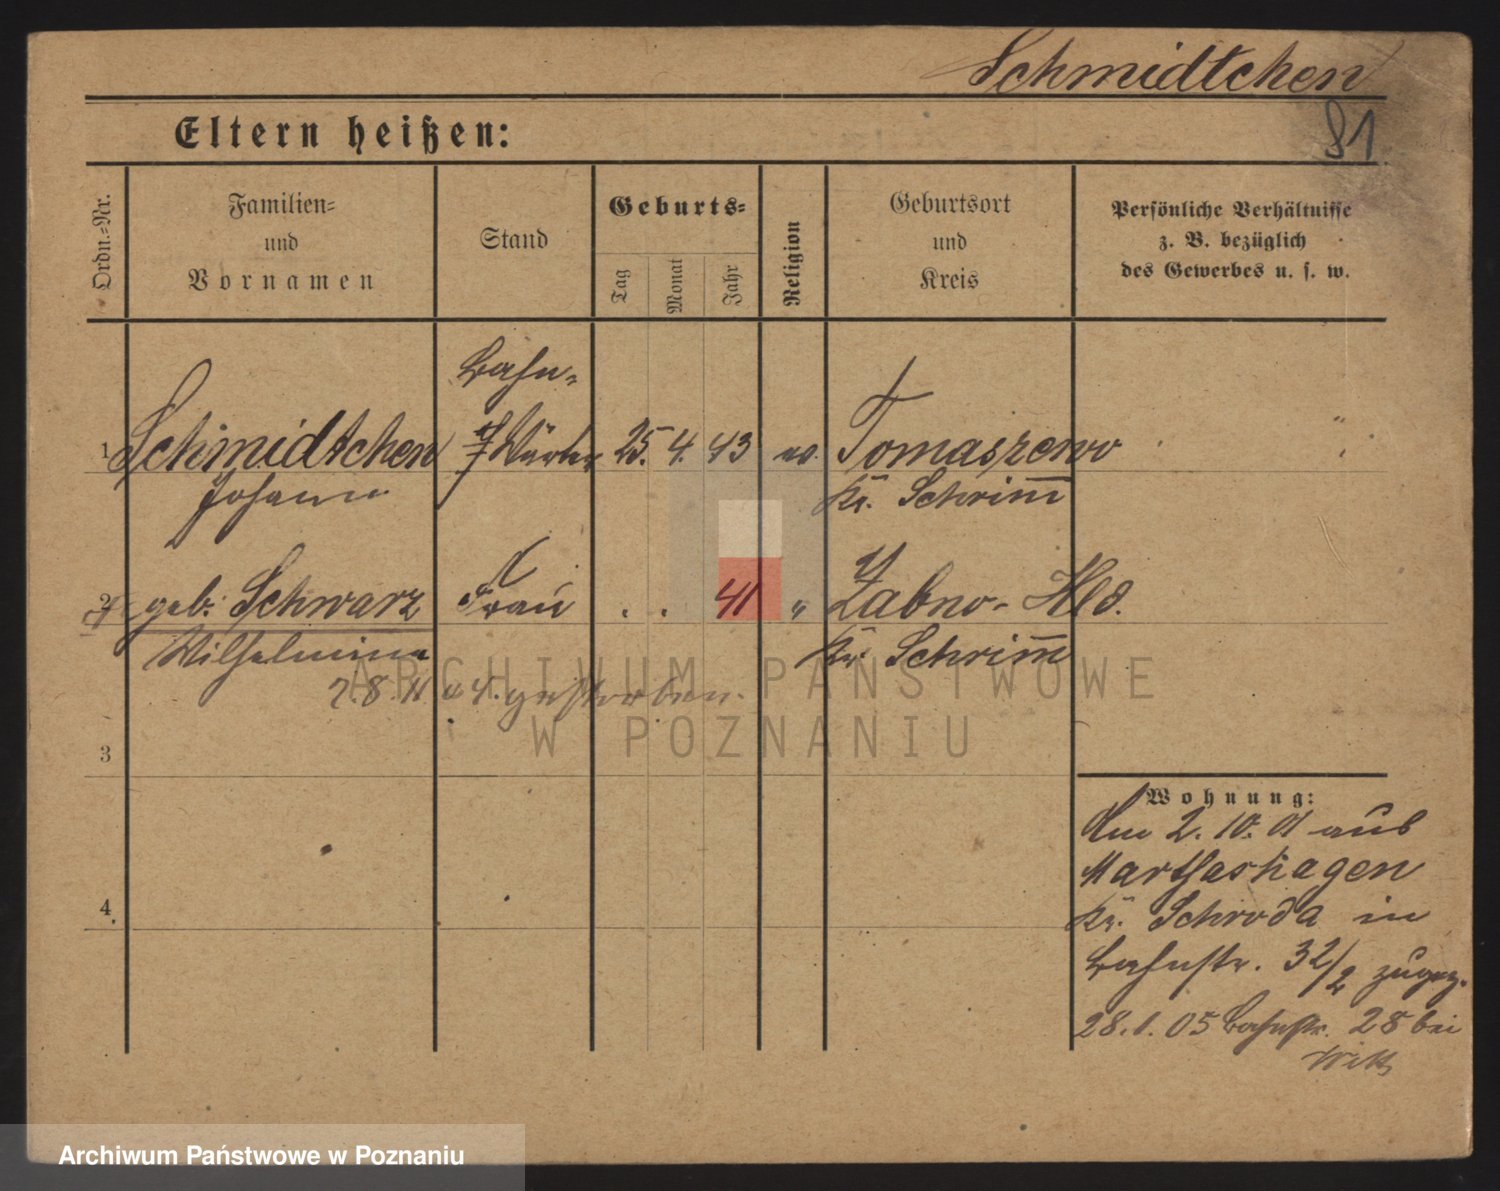 Schmidtchen
81
Eltern heißen:
Ordn.-Nr.
Familien-
und
Vornamen
Stand
Geburts-
Tag
Monat
Jahr
Religion
Geburtsort
und
Kreis
Persönliche Verhältnisse
z. B. bezüglich
des Gewerbes u. s. w.
Bahn-
1 Schmidtchen Wärter 25. 4. 43 ev. Tomaszewo
Johann Kr. Schrim̄
2 geb. Schwarz Frau . . 41 " Zabno-Hld.
Wilhelmine Kr. Schrim̄
2. 8. 11 gestorben.
ARCHIWUM PAŃSTWOWE
W POZNANIU
3
Wohnung:
Am 2. 10. 01 aus
Marthashagen
4. Kr. Schroda in
Bahnstr. 32/2 zugez.
28. 1. 05 Bahnstr. 28 bei
Archiwum Państwowe w Poznaniu